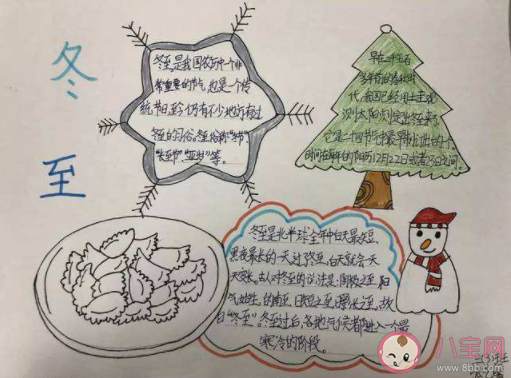 冬
至
冬至,是我国农历中一个非
常重要的节气,也是一个传
统节日,至今仍有不少地方有过
冬至的习俗。冬至俗称"冬节"
"长至节"、"亚岁"等。
早在二千五百
多年前的春秋时
代,我国已经用土圭观
测太阳测定出冬至来了,
它是二十四节气中最早制定出的一个。
时间在每年的阳历12月22日或者23日之间。
冬至是北半球全年中白天最短、
黑夜最长的一天,过了冬至,白天就会一天
天变长,古人对冬至的说法是:阴极之至,阳
气始生,日南至,日短之至,日影长之至,故
曰"冬至"。冬至过后,各地气候都进入一个最
寒冷的阶段。
八宝网
www.8bb.com